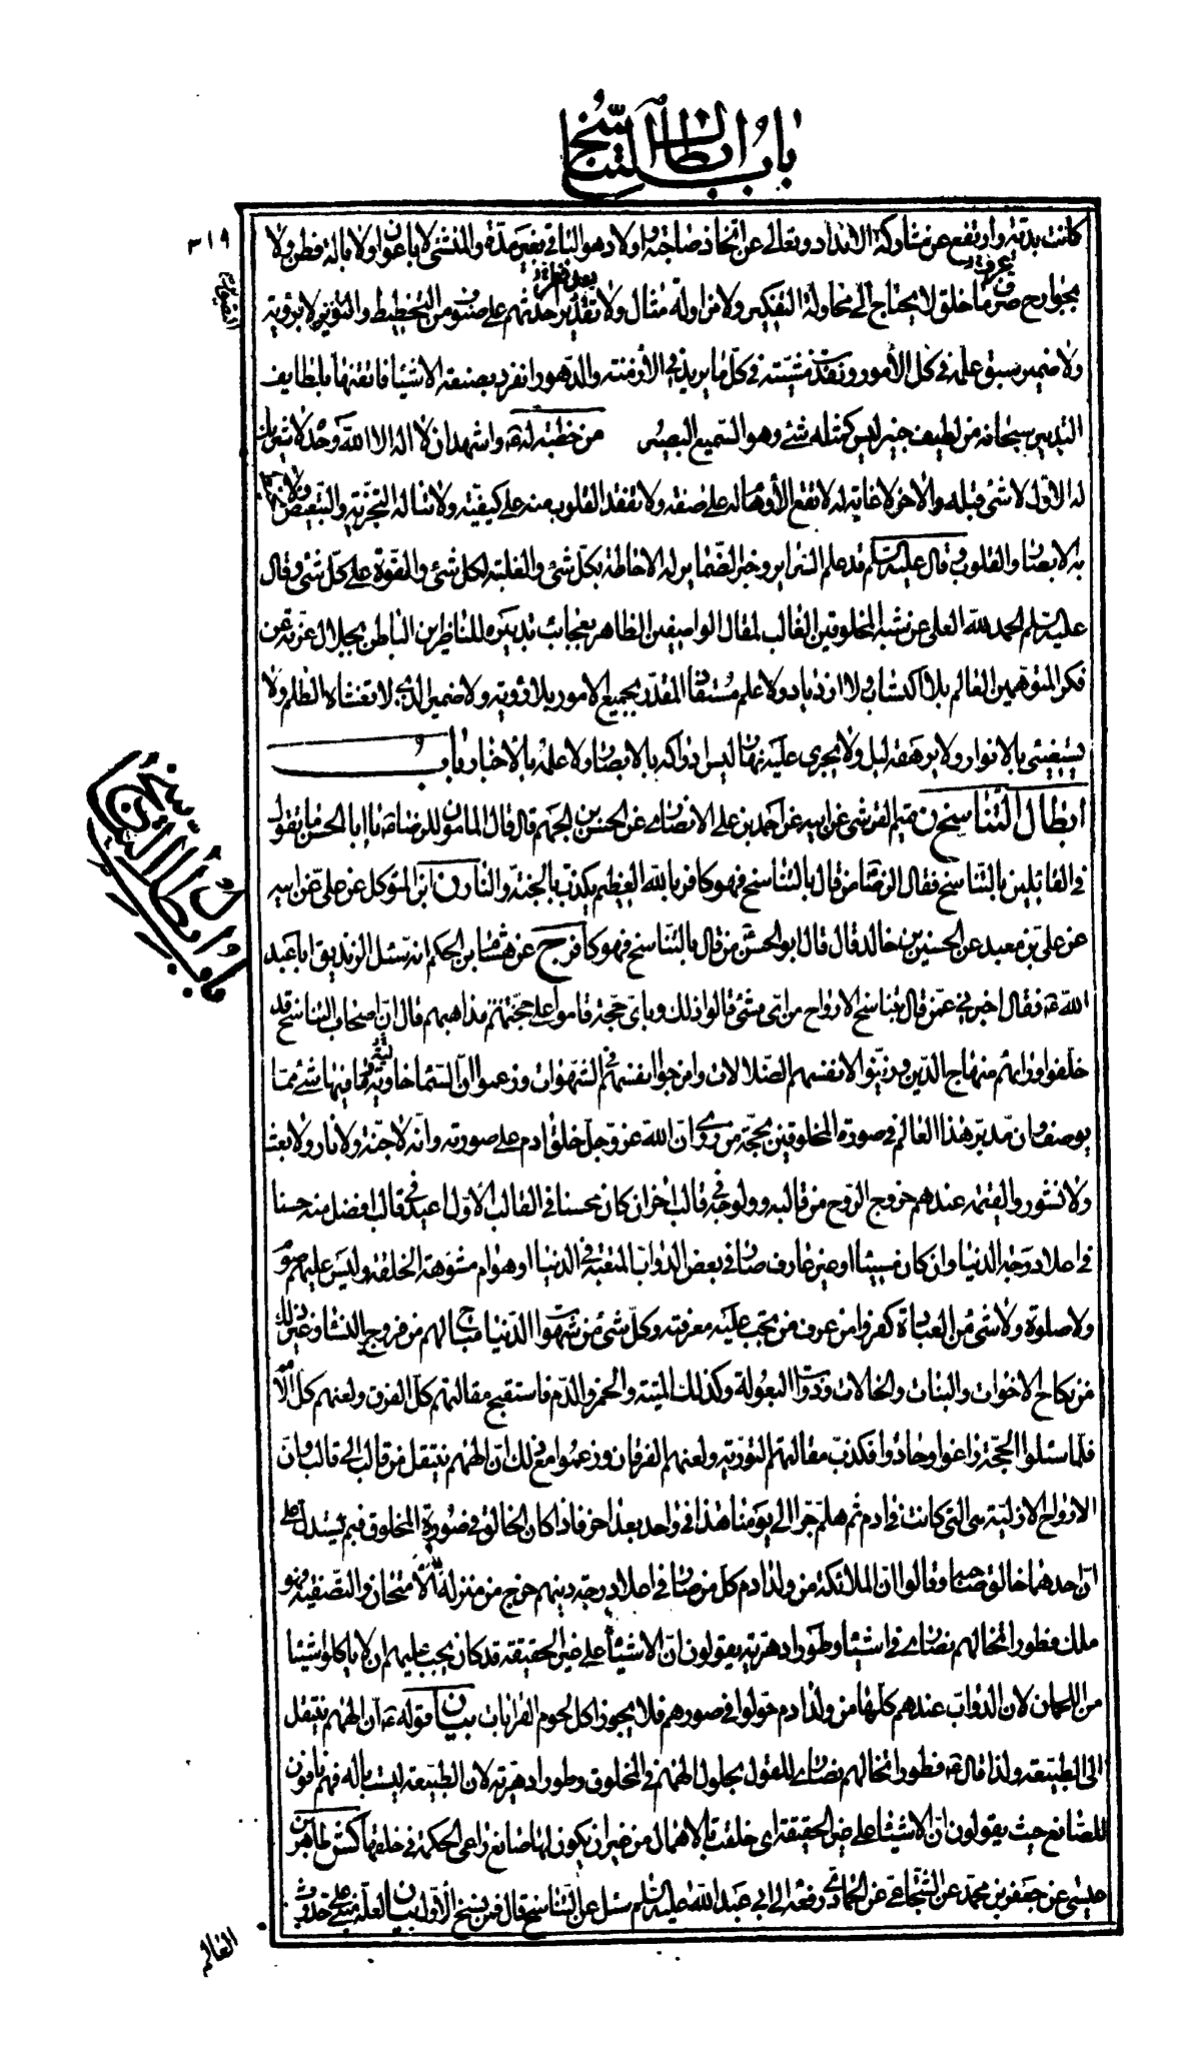 باب ابطال التناسخ
٣١٩
كانت بدقته وارتفع عن مشاركة الانداد وتعالى عن اتخاذ صاحبة واولاد هو الباقي بغير مدة والمنشئ لا باعوان ولا بالة فطن ولا
بجوارح صرف ما خلق لا يحتاج الى محاولة التفكير ولا مزاولة مثال ولا تقدير احدثهم على صنوف من التخطيط والتصوير لا بروية
ولا ضمير سبق علمه في كل الأمور ونفذت مشيته في كل ما يريد في الأزمنة والدهور انفرد بصنعة الاشياء فاتقنها بلطايف
التدبير سبحانه من لطيف خبير ليس كمثله شئ وهو السميع البصير من خطبة له ع واشهد ان لا اله الا الله وحده لا شريك
له الاول لا شئ قبله والاخر لا غاية له لا تقع الأوهام له على صفة ولا تعقد القلوب منه على كيفية ولا تناله التجزية والتبعيض ولا تحيط
به الابصار والقلوب وقال عليه السلم قد علم السراير وخبر الضماير له الاحاطة بكل شئ والغلبة لكل شئ والقوة على كل شئ وقال
عليه السلم الحمد لله العلي عن شبه المخلوقين الغالب لمقال الواصفين الظاهر بعجائب تدبيره للناظرين الباطن بجلال عزته عن
فكر المتوهمين العالم بلا اكتساب ولا ازدياد ولا علم مستفاد المقدر لجميع الامور بلا روية ولا ضمير الذي لا تغشاه الظلم ولا
يستضئ بالانوار ولا يرهقه ليل ولا يجري عليه نهار ليس ادراكه بالابصار ولا علمه بالاخبار باب
ابطال التناسخ ن تميم القرشي عن ابيه عن احمد بن علي الانصاري عن الحسن بن الجهم قال قال المامون للرضا ع يا ابا الحسن ما تقول
في القائلين بالتناسخ فقال الرضا من قال بالتناسخ فهو كافر بالله العظيم يكذب بالجنة والنار ن ابن المتوكل عن علي عن ابيه
عن علي بن معبد عن الحسين بن خالد قال قال ابو الحسن من قال بالتناسخ فهو كافر ج عن هشام بن الحكم انه سئل الزنديق ابا عبد
الله ع فقال اخبرني عمن قال بتناسخ الارواح من اي شئ قالوا ذلك وباي حجة قاموا على مذاهبهم قال ان اصحاب التناسخ قد
خلفوا وراءهم منهاج الدين وزينوا لانفسهم الضلالات وامرجوا انفسهم في الشهوات وزعموا ان السماء خاوية ما فيها شئ مما
يوصف وان مدبر هذا العالم في صورة المخلوقين بحجة من روى ان الله عز وجل خلق ادم على صورته وانه لا جنة ولا نار ولا بعث
ولا نشور والقيمة عندهم خروج الروح من قالبه وولوجه في قالب اخر ان كان محسنا في القالب الاول اعيد في قالب افضل منه حسنا
في اعلا درجة الدنيا وان كان مسيئا او غير عارف صار في بعض الدواب المتعبة في الدنيا او هوام مشوهة الخلقة وليس عليهم صوم
ولا صلوة ولا شئ من العبادة كفروا من عرف من تجب عليه معرفته وكل شئ من شهوات الدنيا مباح لهم من فروج النساء وغير ذلك
من نكاح الاخوات والبنات والخالات وذوات البعولة وكذلك الميتة والخمر والدم فاستقبح مقالتهم كل الفرق ولعنهم كل الامم
فلما سئلوا الحجة زاغوا وحادوا فكذب مقالتهم التورية ولعنهم الفرقان وزعموا مع ذلك ان الههم ينتقل من قالب الى قالب وان
الارواح الازلية هي التي كانت في ادم ثم هلم جرا الى يومنا هذا في واحد بعد اخر فاذا كان الخالق في صورة المخلوق فبم يستدل على
ان احدهما خالق صاحبه وقالوا ان الملائكة من ولد ادم كل من صار في اعلا درجة دينهم خرج من منزلة الامتحان والتصفية فهو
ملك فطورا تخالهم نصارى في اشياء وطورا دهرية يقولون ان الاشياء على غير الحقيقة قد كان يجب عليهم ان لا ياكلوا شيئا
من اللحمان لان الدواب عندهم كلها من ولد ادم حولوا في صورهم فلا يجوز اكل لحوم القرابات بيان قوله ع ان الههم ينتقل
الى الطبيعة ولذا قال ع فطورا تخالهم نصارى للقول بحلول الههم في المخلوق وطورا دهرية لان الطبيعة ليست باله فهم نافون
للصانع حيث يقولون ان الاشياء على غير الحقيقة اي خلقت بالاهمال من غير ان يكون لها صانع راعى الحكمة في خلقها كش طاهر بن
عيسى عن جعفر بن محمد عن الشجاعي عن الحمادي رفعه الى ابي عبد الله عليه السلم سئل عن التناسخ قال فمن نسخ الاول بيان لعله مبني على حدوث
باب ابطال التناسخ
العالم